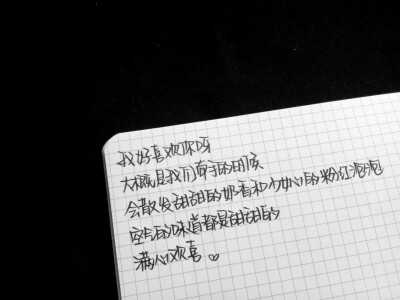 我好喜欢你呀
大概是我们牵手的时候
会散发甜甜的奶香和少女心的粉红泡泡
空气的味道都是甜甜的
满心欢喜